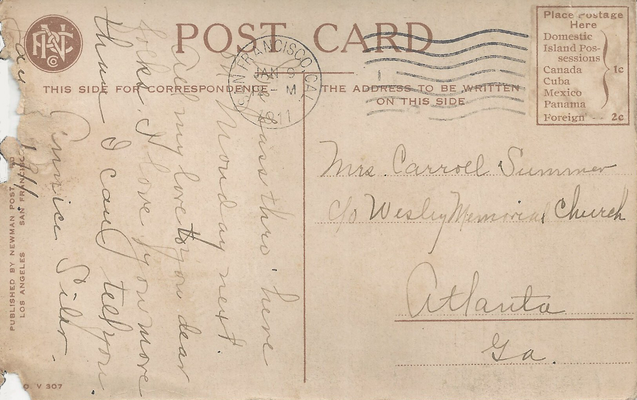 POST CARD
THIS SIDE FOR CORRESPONDENCE
THE ADDRESS TO BE WRITTEN
ON THIS SIDE
Place Postage
Here
Domestic
Island Pos-
sessions
Canada
Cuba
Mexico
Panama
1c
Foreign -- 2c
SAN FRANCISCO, CAL.
JAN 9
M
1911
Mrs. Carroll Summer
c/o Wesley Memorial Church
Atlanta
Ga.
pass thro' here
Monday next.
All my love to you dear
I love you more
than I can tell you
Annice Siler.
PUBLISHED BY NEWMAN POST
LOS ANGELES SAN FRANCISCO
V 307